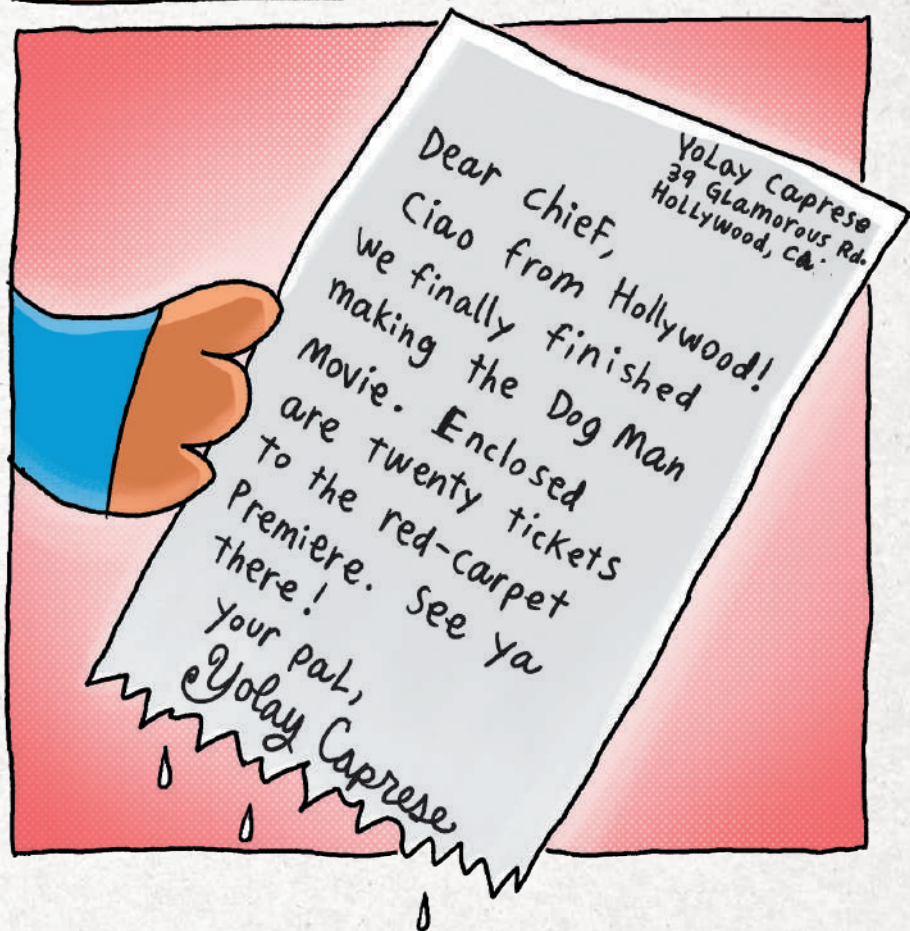 Yolay Caprese
39 Glamorous Rd.
Hollywood, Ca.
Dear Chief,
Ciao from Hollywood!
We finally finished
making the Dog Man
Movie. Enclosed
are twenty tickets
to the red-carpet
Premiere. See ya
there!
your pal,
Yolay Caprese